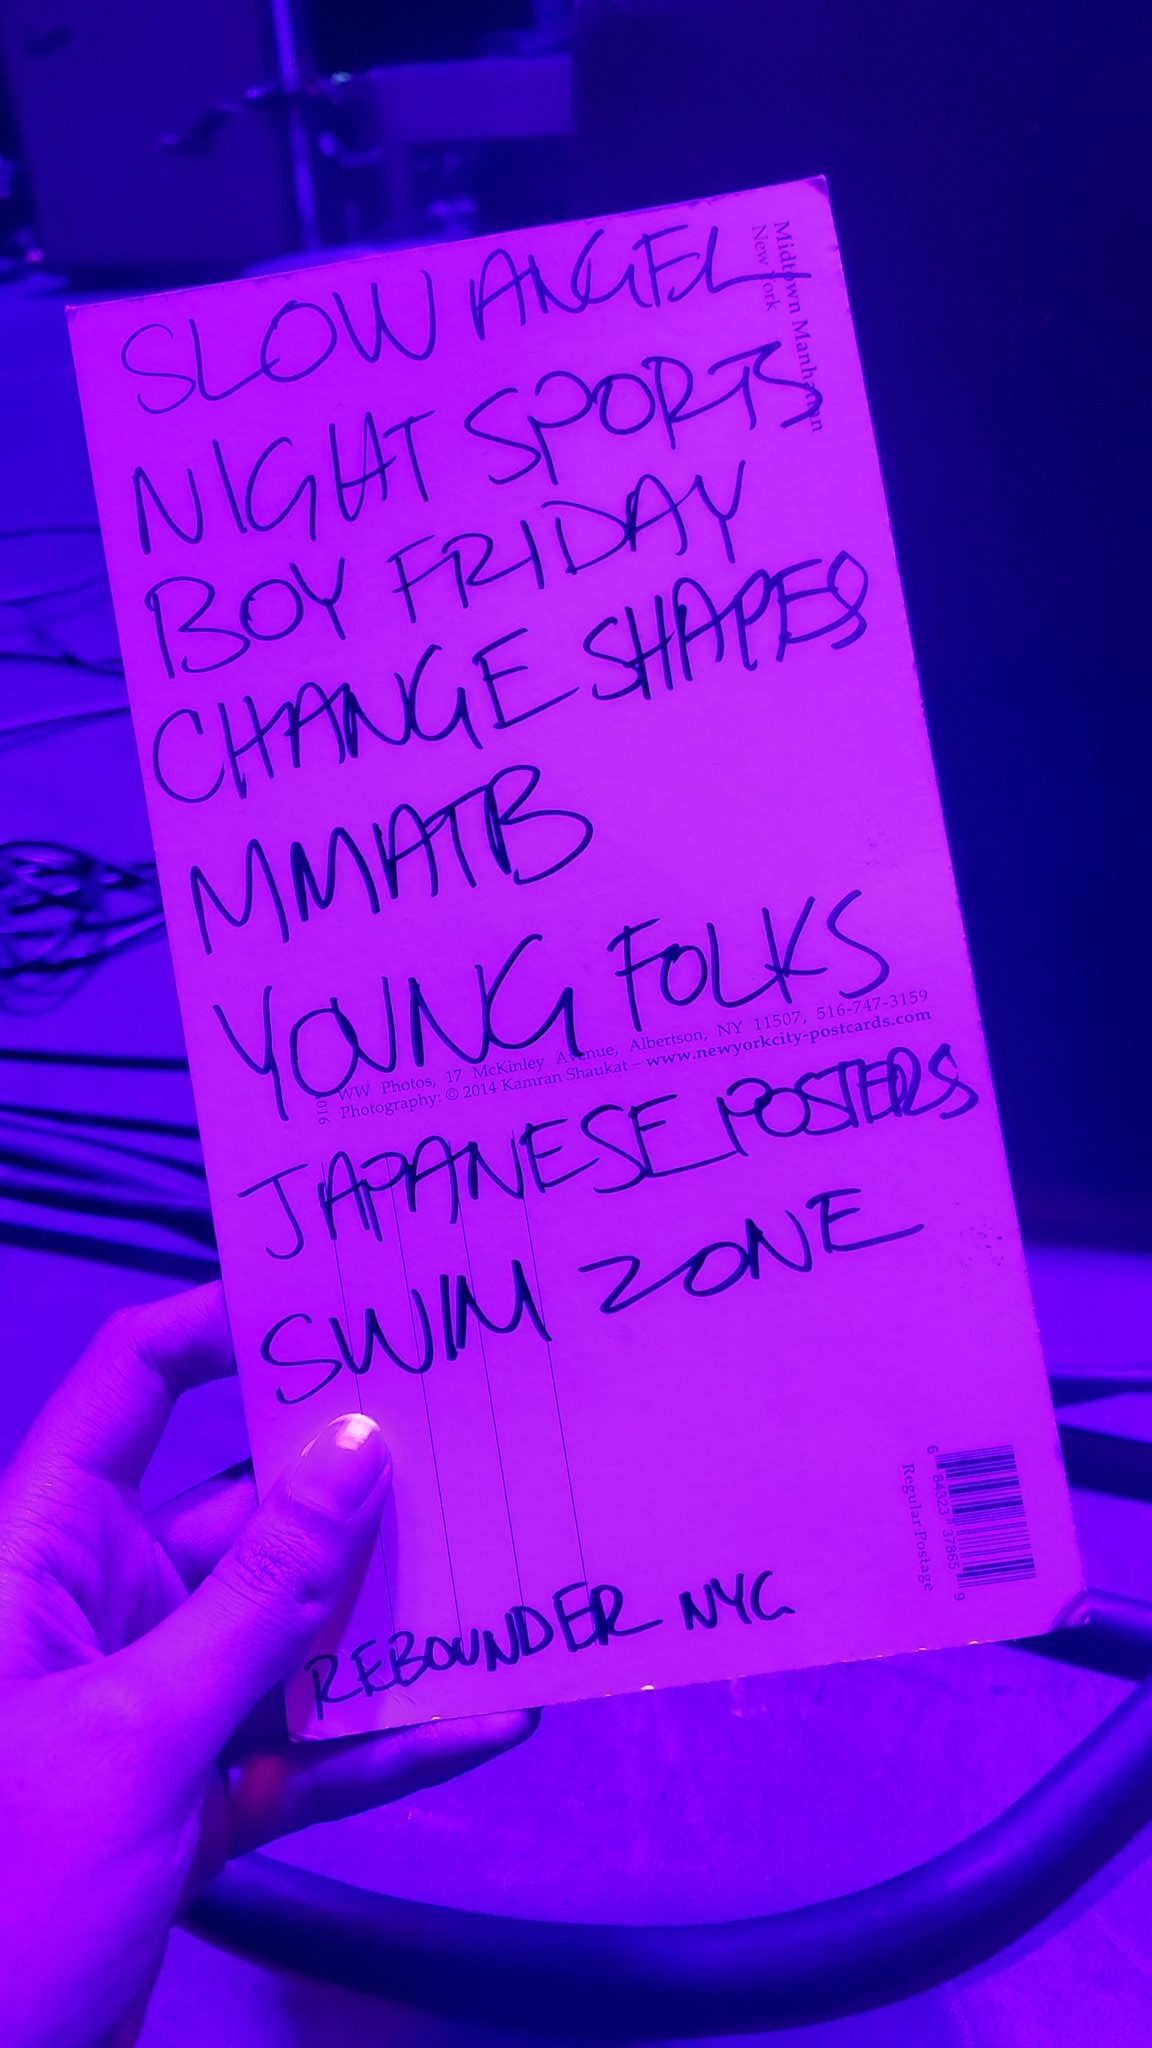 SLOW ANGEL
NIGHT SPORTS
BOY FRIDAY
CHANGE SHAPES
MMATB
YOUNG FOLKS
JAPANESE POSTERS
SWIM ZONE
REBOUNDER NYC
Midtown Manhattan
New York
WW Photos, 17 McKinley Avenue, Albertson, NY 11507, 516-747-3159
Photography: © 2014 Kamran Shaukat – www.newyorkcity-postcards.com
6 84323 37865 9
Regular Postage